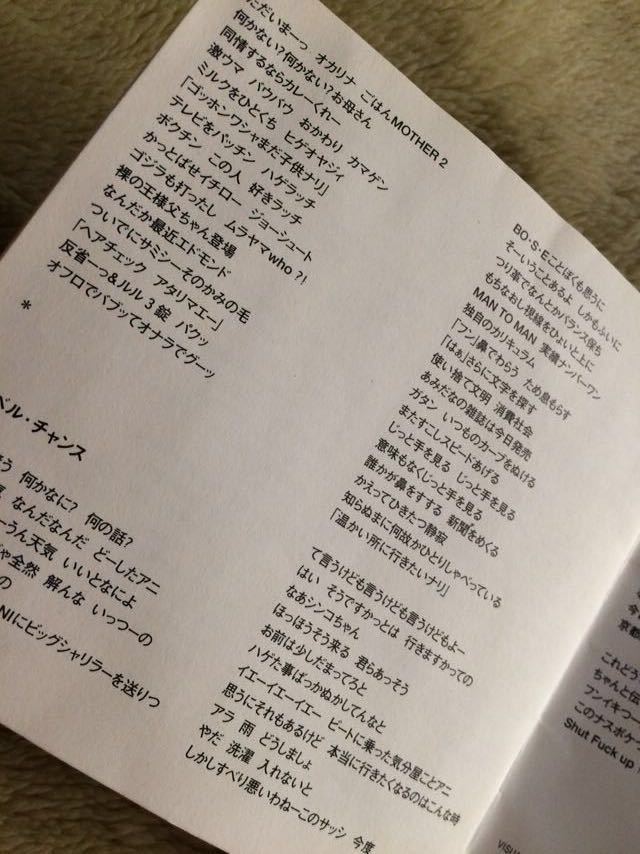 ただいまーっ オカリナ ごはんMOTHER 2
何かない?何かない?お母さん
同情するならカレーくれー
激ウマ バウバウ おかわり カマゲン
ミルクをひとくち ヒゲオヤジィ
「ゴッホンワシャまだ子供ナリ」
テレビをパッチン ハゲラッチ
ボクチン この人 好きラッチ
かっとばせイチロー ジョーシュート
ゴジラも打ったし ムラヤマwho ?!
裸の王様父ちゃん登場
なんだか最近エドモンド
ついでにサミシーそのかみの毛
「ヘアチェック アタリマエー」
反省一っ&ルル 3 錠 パクッ
オフロでバブッてオナラでグーッ
*
ベル・チャンス
何かなに? 何の話?
なんだなんだ どーしたアニ
ーうん天気 いいとなによ
全然 解んな いっつーの
の
NIにビッグシャリラーを送りつ
BO・S・Eことぼくも思うに
そーいうことあるよ しかもふいに
つり革でなんとかバランス保ち
もちなおし視線をひょいと上に
MAN TO MAN 実績ナンバーワン
独自のカリキュラム
「フン」鼻でわらう ため息もらす
「はぁ」さらに文字を探す
使い捨て文明 消費社会
あみだなの雑誌は今日発売
ガタン いつものカーブをぬける
またすこしスピードあげる
じっと手を見る じっと手を見る
意味もなくじっと手を見る
誰かが鼻をすする 新聞をめくる
かえってひきたつ静寂
知らぬまに何故かひとりしゃべっている
「温かい所に行きたいナリ」
て言うけども言うけども言うけどもよー
はい そうですかっとは 行きますかっての
なあシンコちゃん
ほっほうそう来る 君らあっそう
お前は少しだまってろと
ハゲた事ばっかぬかしてんなと
イエーイエーイエー ビートに乗った気分屋ことアニ
思うにそれもあるけど 本当に行きたくなるのはこんな時
アラ 雨 どうしましょ
やだ 洗濯 入れないと
しかしすべり悪いわねーこのサッシ 今度
今
京都
これどう
ちゃんと伝
フンイキつ
このナスボケ
Shut Fuck up
VISU